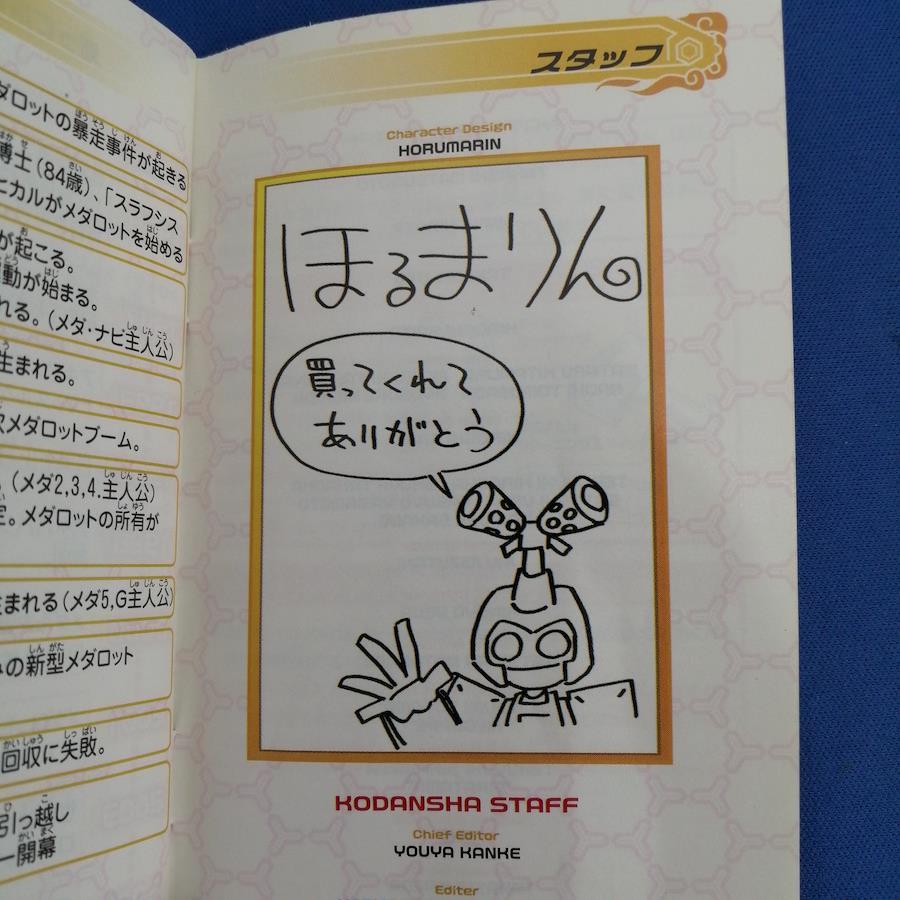 ダロットの暴走事件が起きる
博士(84歳)、「スラフシス
ヒカルがメダロットを始める
が起こる。
動が始まる。
れる。(メダ・ナビ主人公)
生まれる。
メダロットブーム。
(メダ2,3,4.主人公)
。メダロットの所有が
まれる(メダ5,G主人公)
の新型メダロット
回収に失敗。
引っ越し
ー開幕
スタッフ
Character Design
HORUMARIN
ほるまりん
買ってくれて
ありがとう
KODANSHA STAFF
Chief Editor
YOUYA KANKE
Editer